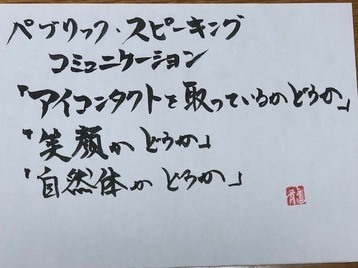 パブリック・スピーキング
コミュニケーション
「アイコンタクトを取っているかどうか」
「笑顔かどうか」
「自然体かどうか」